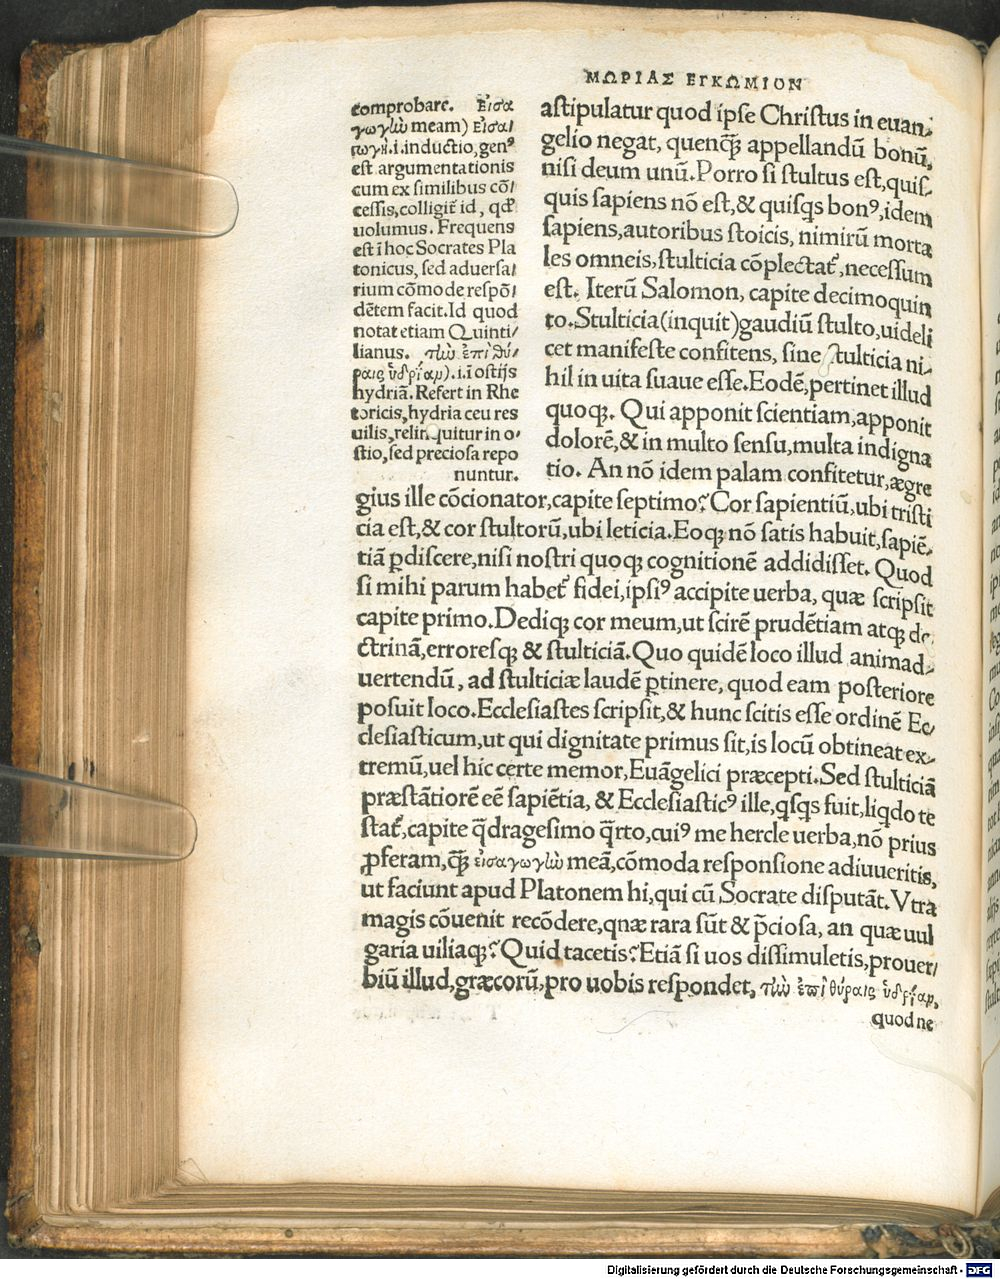 ΜΩΡΙΑΣ ΕΓΚΩΜΙΟΝ
comprobare. Εἰσα
γωγὼ meam) Εἰσα/
γωγὴ.i.inductio,genꝰ
est argumentationis
cum ex similibus cō/
cessis,colligit̃ id, qđ
uolumus. Frequens
est ī hoc Socrates Pla
tonicus, sed aduersa/
rium cōmode respō/
dētem facit.Id quod
notat etiam Quinti/
lianus. τὼ ἐπὶ θύ/
ραις ὑδρίαμ).i.ī ostijs
hydriā. Refert in Rhe
toricis,hydria ceu res
uilis,relinquitur in o/
stio,sed preciosa repo
nuntur.
astipulatur quod ipse Christus in euan/
gelio negat, quenq̃ꝫ appellandū bonū,
nisi deum unū.Porro si stultus est,quis/
quis sapiens nō est,& quisq̃s bonꝰ,idem
sapiens,autoribus stoicis, nimirū morta
les omneis,stulticia cōplectat̃,necessum
est. Iterū Salomon, capite decimoquin
to.Stulticia(inquit)gaudiū stulto,uideli
cet manifeste confitens, sine stulticia ni/
hil in uita suaue esse.Eodē,pertinet illud
quoqꝫ. Qui apponit scientiam,apponit
dolorē,& in multo sensu,multa indigna
tio. An nō idem palam confitetur,ægre
gius ille cōcionator,capite septimo? Cor sapientiū,ubi tristi
cia est,& cor stultorū,ubi leticia.Eoqꝫ nō satis habuit,sapiē/
tiā ꝑdiscere,nisi nostri quoqꝫ cognitionē addidisset. Quod
si mihi parum habet̃ fidei,ipsiꝰ accipite uerba, quæ scripsit
capite primo.Dediqꝫ cor meum,ut scirē prudētiam atqꝫ do/
ctrinā,erroresqꝫ & stulticiā.Quo quidē loco illud animad/
uertendū, ad stulticiæ laudē ꝑtinere, quod eam posteriore
posuit loco.Ecclesiastes scripsit,& hunc scitis esse ordinē Ec/
clesiasticum,ut qui dignitate primus sit,is locū obtineat ex/
tremū,uel hic certe memor,Euāgelici præcepti.Sed stulticiā
præstātiorē eē sapiētia, & Ecclesiasticꝰ ille,q̃sq̃s fuit,liq̃do te
stat̃,capite q̃dragesimo q̃rto,cuiꝰ me hercle uerba,nō prius
ꝓferam,q̃ꝫ εἰσαγωγὼ meā,cōmoda responsione adiuueritis,
ut faciunt apud Platonem hi,qui cū Socrate disputāt.Vtra
magis cōuenit recōdere,qnæ rara sūt & p̃ciosa, an quæ uul
garia uiliaqꝫ? Quid tacetis? Etiā si uos dissimuletis,prouer/
biū illud,græcorū,pro uobis respondet, τὼ ἐπὶ θύραις ὑδρίαμ,
quod ne
Digitalisierung gefördert durch die Deutsche Forschungsgemeinschaft - DFG